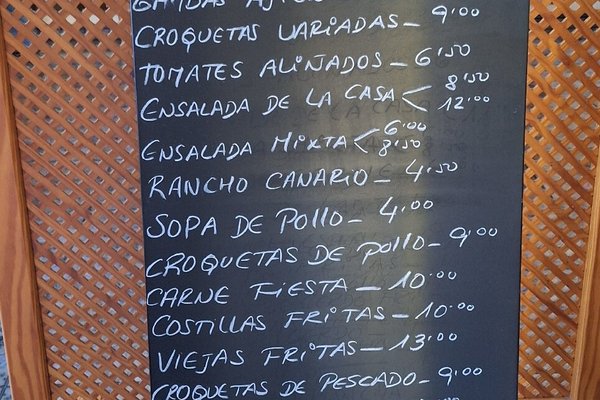 CROQUETAS VARIADAS - 9'00
TOMATES ALIÑADOS - 6'50
ENSALADA DE LA CASA < 8'50
12'00
ENSALADA MIXTA < 6'00
8'50
RANCHO CANARIO - 4'50
SOPA DE POLLO - 4'00
CROQUETAS DE POLLO - 9'00
CARNE FIESTA - 10'00
COSTILLAS FRITAS - 10'00
VIEJAS FRITAS - 13'00
CROQUETAS DE PESCADO - 9'00